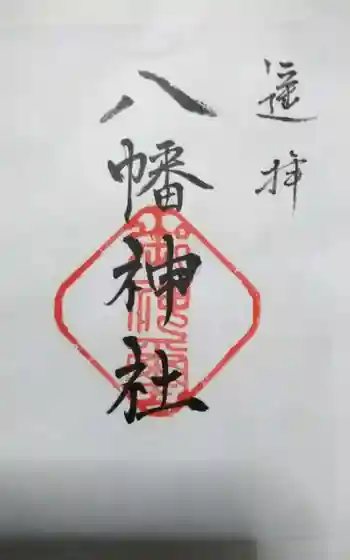 遥拝
八幡神社